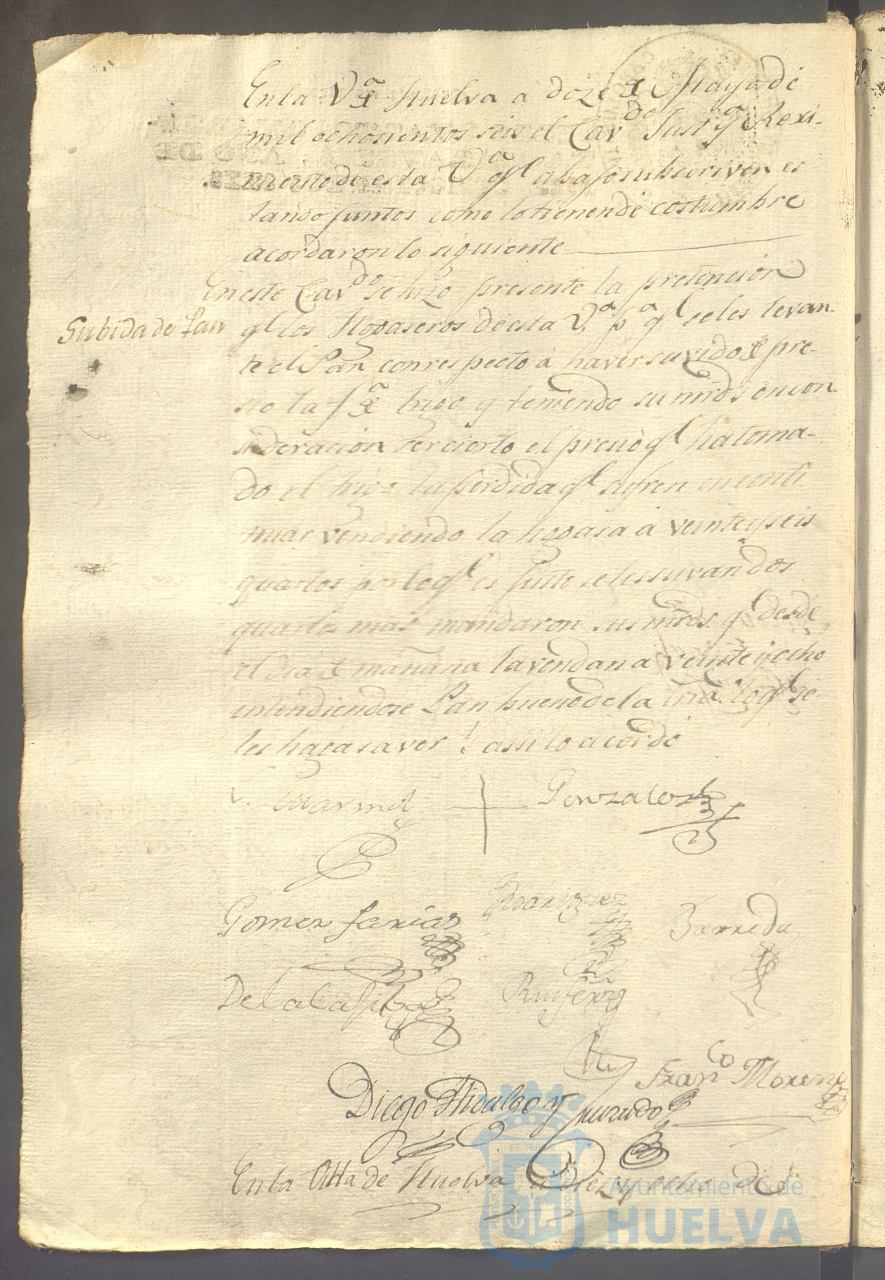 En la V.ª de Huelva a doze de Mayo de
mil ochosientos seis el Cav.do Just.ª y Rexi-
miento de esta V.ª q.e abajo subscriven es
tando juntos como lo tienen de costumbre
acordaron lo siguiente
En este Cav.do se hizo presente la pretencion
Subida de Pan
q.e los Hogaseros de esta V.ª p.ª q.e se les levan-
te el Pan con respecto a haver suvido de pre-
sio la f.ª de trigo y teniendo su mrds en con
sideracion ser cierto el precio q.e ha toma-
do el trigo la perdida q.e sufren en conti
nuar vendiendo la hogasa a veinte y seis
quartos por lo q.e es justo se les suvan dos
quartos mas mandaron sus mrds q.e desde
el dia de mañana la vendan a veinte y ocho
entendiendose Pan bueno de la lo q.e se
les haga saver assi lo acordó
Gonzalez
Gomez Farias
Rodriguez
Barreda
De la Cassa
Ruifernz
Fran.co Moreno
Diego Hidalgo y Jurado
En la Villa de Huelva a Diez y ocho de
Ayuntamiento de
HUELVA